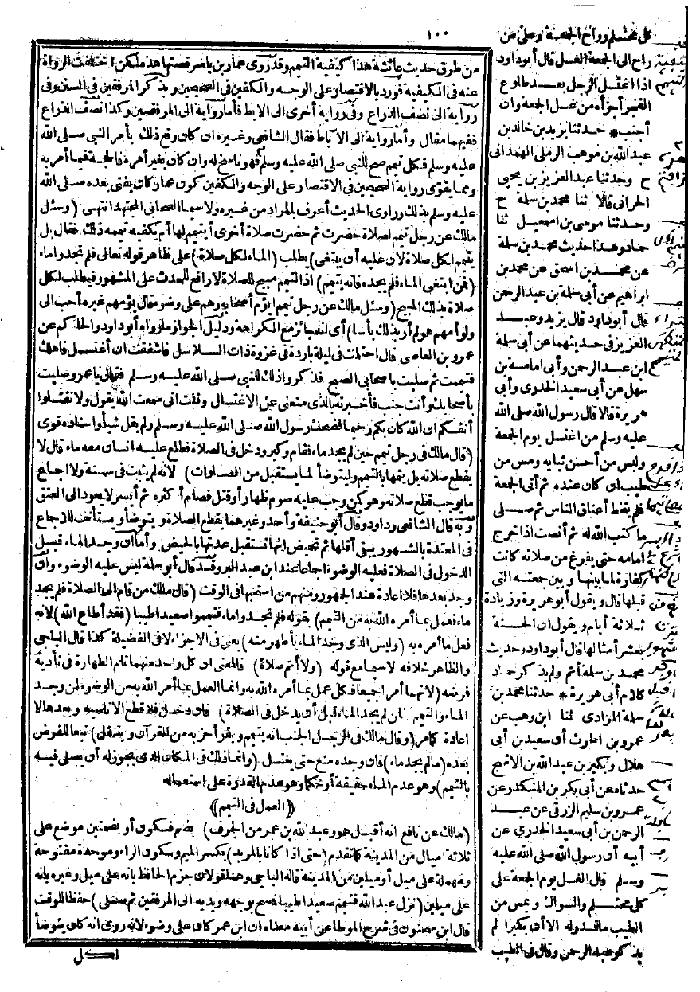 ١٠٠
من طرق حديث عائشة هذا كيفية التيمم وقد روى عمار بن ياسر قصتها هذه لكن اختلفت الرواة
عنه في الكيفية فورد بالاقتصار على الوجه والكفين في الصحيحين وبذكر المرفقين في السنن وفي
رواية الى نصف الذراع وفي رواية أخرى الى الابط فأما رواية الى المرفقين وكذا نصف الذراع
ففيهما مقال وأما رواية الى الآباط فقال الشافعي وغيره ان كان وقع ذلك بأمر النبي صلى الله
عليه وسلم فكل تيمم صح للنبي صلى الله عليه وسلم فهو ناسخ له وان كان بغير أمره فالحجة فيما أمر به
ومما يقوى رواية الصحيحين في الاقتصار على الوجه والكفين كون عمار كان يفتي بعده صلى الله
عليه وسلم بذلك وراوى الحديث أعرف بالمراد من غيره ولا سيما الصحابي المجتهد انتهى (وسئل
مالك عن رجل تيمم لصلاة حضرت ثم حضرت صلاة أخرى أيتيمم لها أم يكفيه تيممه ذلك فقال بل
يتيمم لكل صلاة لان عليه أن يبتغي) يطلب (الماء لكل صلاة) على ظاهر قوله تعالى فلم تجدوا ماء
(فمن ابتغى الماء فلم يجده فانه يتيمم) اذ التيمم مبيح للصلاة لا رافع للحدث على المشهور فيطلب لكل
صلاة بذلك المبيح (وسئل مالك عن رجل تيمم أيؤم أصحابه وهم على وضوء قال يؤمهم غيره أحب الى
ولو أمهم هو لم أر بذلك بأسا) أى انه صائر مع الكراهة ودليل الجواز ما رواه أبو داود والحاكم عن
عمرو بن العاصى قال احتلمت في ليلة باردة في غزوة ذات السلاسل فأشفقت ان أغتسل فأهلك
فتيممت ثم صليت بأصحابي الصبح فذكروا ذلك للنبي صلى الله عليه وسلم فقال يا عمرو صليت
بأصحابك وأنت جنب فأخبرته بالذي منعني من الاغتسال وقلت اني سمعت الله يقول ولا تقتلوا
أنفسكم ان الله كان بكم رحيما فضحك رسول الله صلى الله عليه وسلم ولم يقل شيأ واسناده قوى
(قال مالك في رجل تيمم حين لم يجد ماء فقام وكبر ودخل في الصلاة فطلع عليه انسان معه ماء قال لا
يقطع صلاته بل يتمها بالتيمم وليتوضأ لما يستقبل من الصلوات) لانه لم يثبت في سنة ولا اجماع
ما يوجب قطع صلاته وهو كمن وجب عليه صوم ظهار أو قتل فصام أكثره ثم أيسر لا يعود الى العتق
وبه قال الشافعي وداود وقال أبو حنيفة وأحمد وغيرهما يقطع الصلاة ويتوضأ ويستأنف للاجماع
في المعتدة بالشهور يبقى أقلها ثم تحيض انها تستقبل عدتها بالحيض وأما ان وجد الماء قبل
الدخول في الصلاة فعليه الوضوء اجماعا عند ابن عبد البر وقد قال أبو سلمة ليس عليه الوضوء وان
وجد بعدها فلا اعادة عند الجمهور ومنهم من استحبها في الوقت (قال مالك من قام الى الصلاة فلم يجد
ماء فعمل بما أمره الله به من التيمم) بقوله فلم تجدوا ماء فتيمموا صعيدا طيبا (فقد أطاع الله) لانه
فعل ما أمر به (وليس الذى وجد الماء بأطهر منه) يعني في الاجزاء لا في الفضيلة كذا قال الباجي
والظاهر خلافه لا سيما مع قوله (ولا أتم صلاة) فالمعنى ان كل واحد منهما تام الطهارة في تأدية
فرضه (لانهما أمرا جميعا فكل عمل بما أمره الله به وانما العمل بما أمر الله به من الوضوء لمن وجد
الماء والتيمم لمن لم يجد الماء قبل أن يدخل في الصلاة) فان دخل فلا قطع الا لناسيه وبعدها لا
اعادة كما مر (وقال مالك في الرجل الجنب انه يتيمم ويقرأ حزبه من القرآن ويتنفل) تبعا للفرض
بعده (ما لم يجد ماء) فان وجده منع حتى يغتسل (وانما ذلك في المكان الذى يجوز له أن يصلى فيه
بالتيمم) وهو عدم الماء حقيقة أو حكما وهو عدم القدرة على استعماله
﴿العمل في التيمم﴾
(مالك عن نافع انه أقبل هو وعبد الله بن عمر من الجرف) بضم فسكون أو بضمتين موضع على
ثلاثة أميال من المدينة كما تقدم (حتى اذا كانا بالمربد) بكسر الميم وسكون الراء وموحدة مفتوحة
ومهملة على ميل أو ميلين من المدينة قاله الباجي وهما قولان جزم الحافظ بانه على ميل وغيره بانه
على ميلين (نزل عبد الله فتيمم صعيدا طيبا فمسح بوجهه ويديه الى المرفقين ثم صلى) حفظا للوقت
قال ابن سحنون في شرح الموطأ عن أبيه معناه ان ابن عمر كان على وضوء لانه روى انه كان يتوضأ
لكل
كل محتلم ورواح الجمعة وعلى من
راح الى الجمعة الغسل قال أبو داود
اذا اغتسل الرجل بعد طلوع
الفجر أجزأه من غسل الجمعة وان
أجنب * حدثنا يزيد بن خالد بن
عبد الله بن موهب الرملي الهمداني
ح وحدثنا عبد العزيز بن يحيى
الحراني قالا ثنا محمد بن سلمة ح
وحدثنا موسى بن اسمعيل ثنا
حماد وهذا حديث محمد بن سلمة
عن محمد بن اسحق عن محمد بن
ابراهيم عن أبي سلمة بن عبد الرحمن
قال أبو داود قال يزيد وعبد
العزيز في حديثهما عن أبي سلمة
ابن عبد الرحمن وأبي امامة بن
سهل عن أبي سعيد الخدري وأبي
هريرة قالا قال رسول الله صلى الله
عليه وسلم من اغتسل يوم الجمعة
ولبس من أحسن ثيابه ومس من
طيب ان كان عنده ثم أتى الجمعة
فلم يتخط أعناق الناس ثم صلى
ما كتب الله له ثم أنصت اذا خرج
امامه حتى يفرغ من صلاته كانت
كفارة لما بينها وبين جمعته التى
قبلها قال ويقول أبو هريرة وزيادة
ثلاثة أيام ويقول ان الحسنة
بعشر أمثالها قال أبو داود وحديث
محمد بن سلمة أتم ولم يذكر حماد
كلام أبي هريرة * حدثنا محمد بن
سلمة المرادى ثنا ابن وهب عن
عمرو بن الحارث أن سعيد بن أبي
هلال وبكير بن عبد الله بن الاشج
حدثاه عن أبي بكر بن المنكدر عن
عمرو بن سليم الزرقي عن عبد
الرحمن بن أبي سعيد الخدري عن
أبيه أن رسول الله صلى الله عليه
وسلم قال الغسل يوم الجمعة على
كل محتلم والسواك ويمس من
الطيب ما قدر له الا أن بكيرا لم
يذكر عبد الرحمن وقال في الطيب